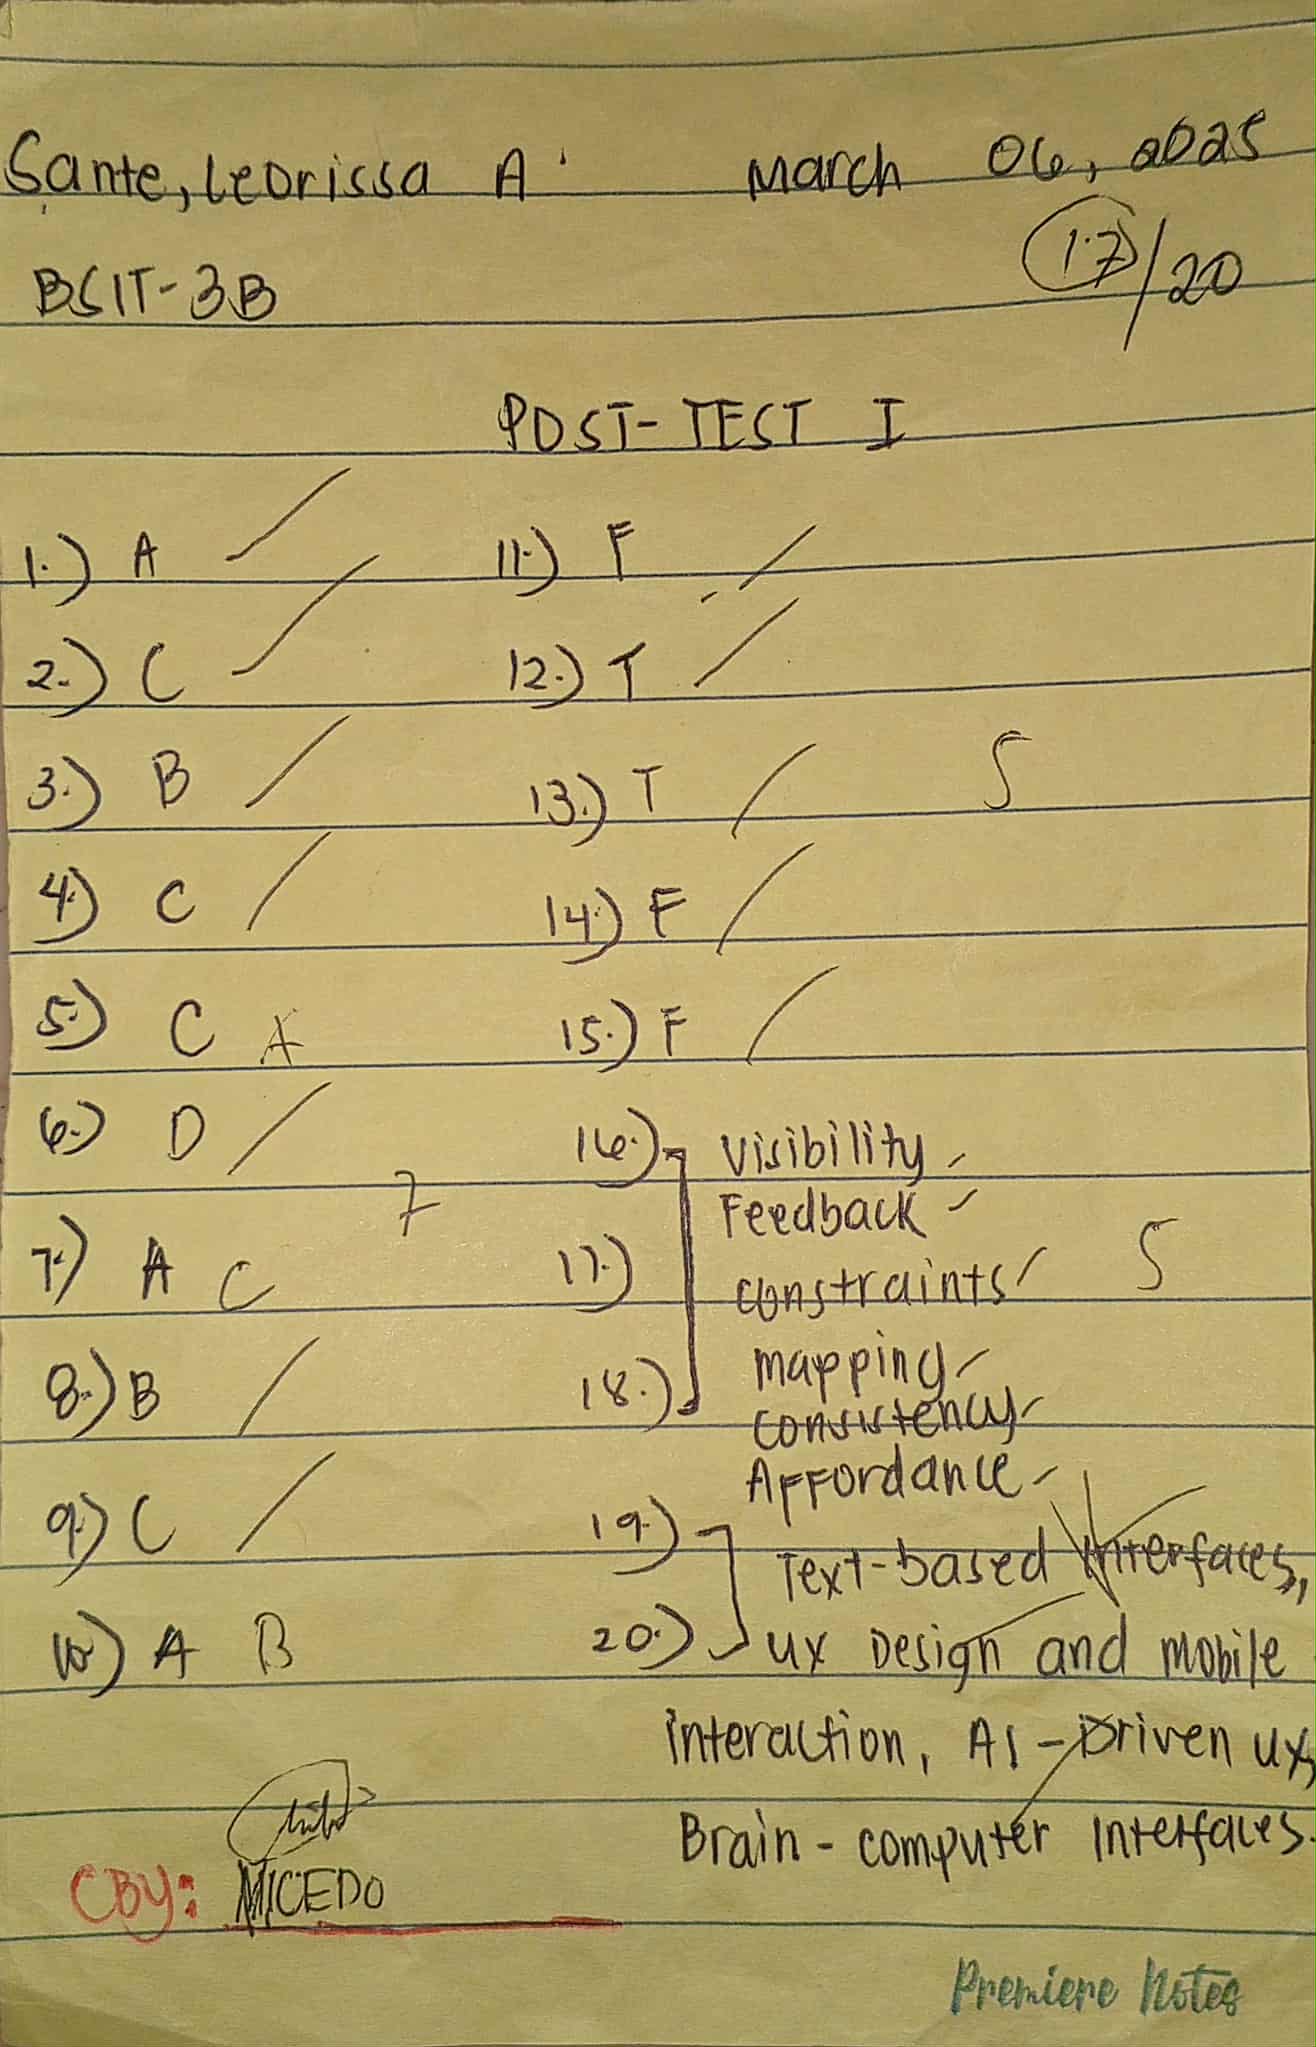 Sante, Leorissa A. March 06, 2025
BSIT-3B 17/20
POST-TEST I
1.) A
2.) C
3.) B
4.) C
5.) C A
6.) D
7
7.) A C
8.) B
9.) C
10.) A B
11.) F
12.) T
13.) T 5
14.) F
15.) F
16.) Visibility
Feedback
17.) constraints 5
18.) mapping
consistency
Affordance
19.) Text-based Interfaces,
20.) UX Design and mobile
interaction, AI-Driven UX,
Brain-computer Interfaces.
CBY: MICEDO
Premiere Notes